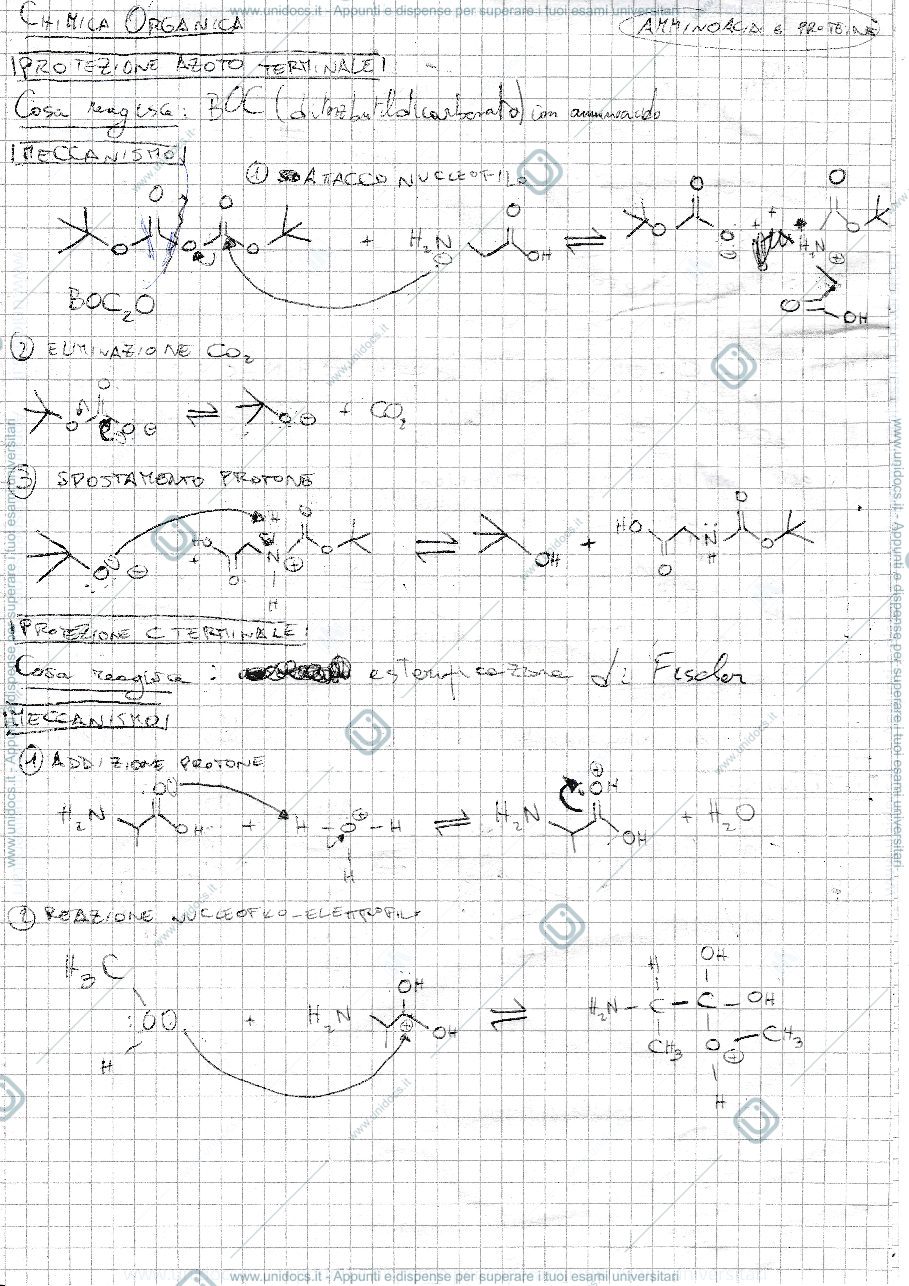 www.unidocs.it - Appunti e dispense per superare i tuoi esami universitari
CHIMICA ORGANICA
AMMINOACIDI E PROTEINE
PROTEZIONE AZOTO TERMINALE
Cosa reagisce: BOC (diterzbutildicarbonato) con aminoacido
MECCANISMO
1 ATTACCO NUCLEOFILO
O O O O O + H2N O OH ⇌ O O O ⊖ O O H2N ⊕ O OH
BOC2O
2 ELIMINAZIONE CO2
O O O ⊖ ⇌ O ⊖ + CO2
3 SPOSTAMENTO PROTONE
O ⊖ HO O H N ⊕ H O O ⇌ OH + HO O N H O O
PROTEZIONE C TERMINALE
Cosa reagisce: esterificazione di Fischer
MECCANISMO
1 ADDIZIONE PROTONE
H2N O OH + H - O ⊕ - H H ⇌ H2N ⊕ OH OH + H2O
2 REAZIONE NUCLEOFILO-ELETTROFILO
H3C O H + H2N OH ⊕ OH ⇌ H OH H2N - C - C - OH CH3 O ⊕ - CH3 H
www.unidocs.it - Appunti e dispense per superare i tuoi esami universitari